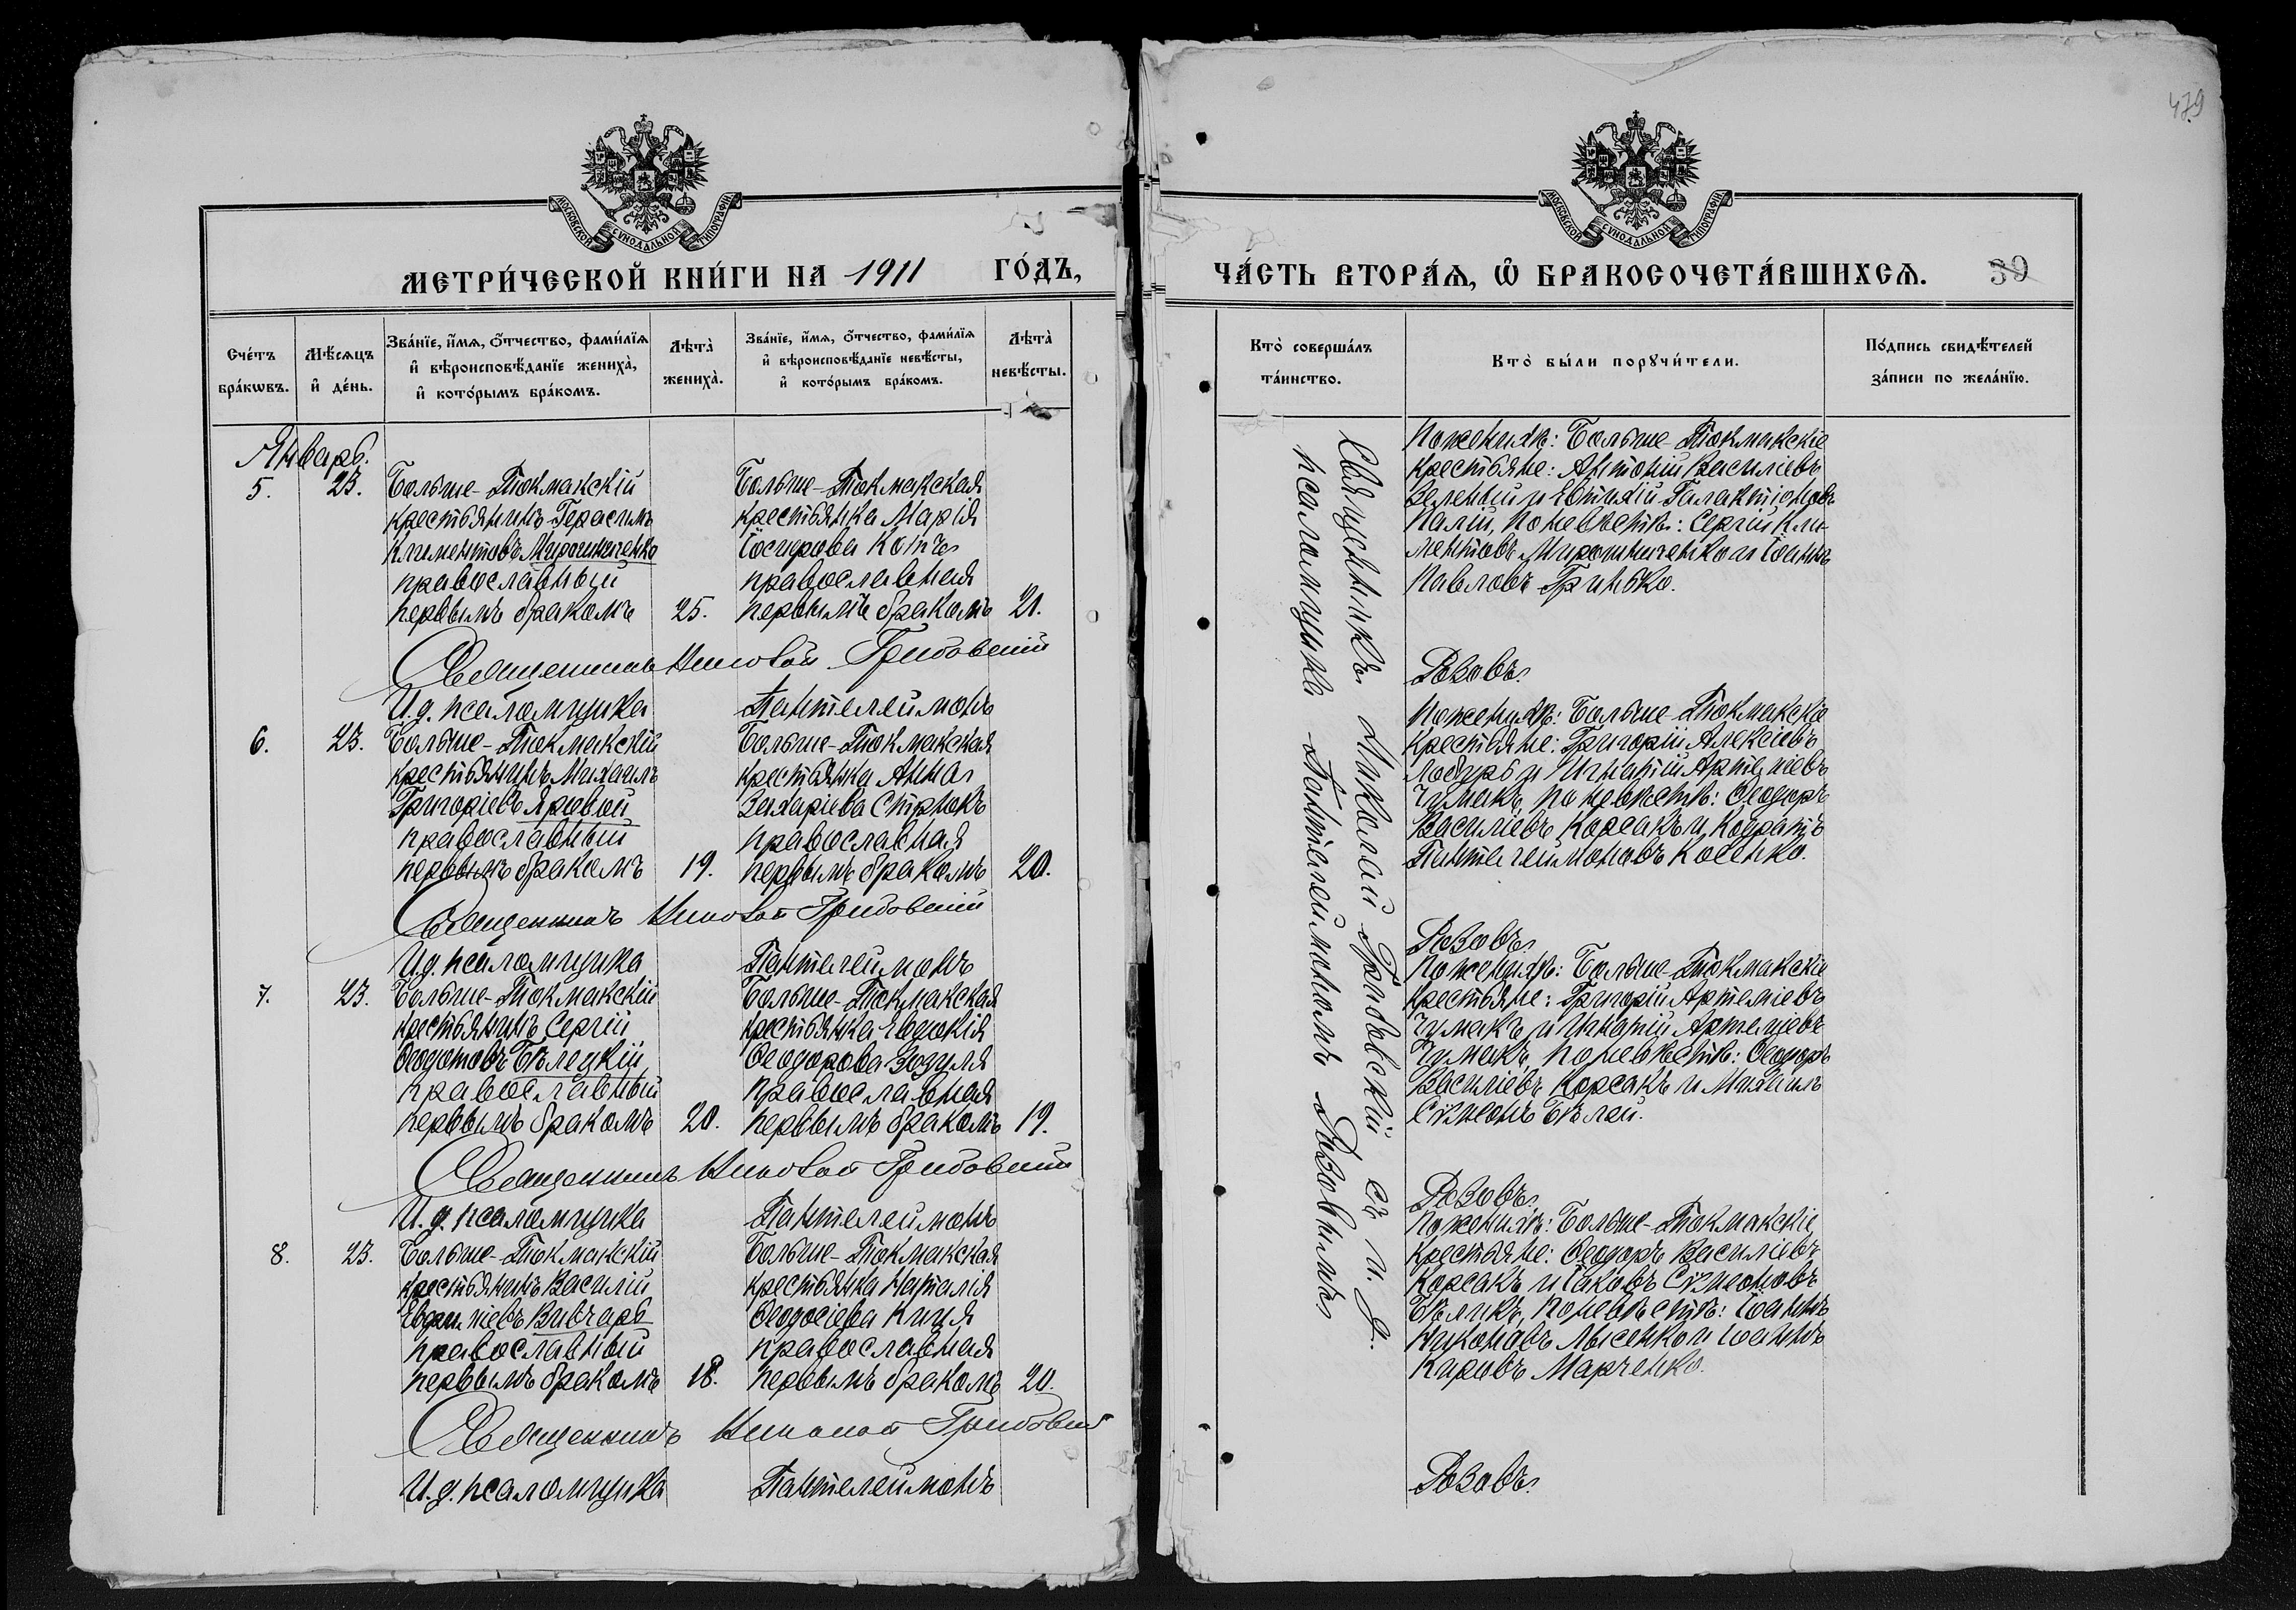 479
МОСКОВСКОЙ СУНОДАЛЬНОЙ ТИПОГРАФІИ
МЕТРИ́ЧЕСКОЙ КНИ́ГИ НА 1911 ГО́ДЪ,
Сче́тъ бра́кωвъ.
Мѣ́сяцъ и҆ де́нь.
Зва́нїе, и҆́мѧ, ѻ҆́тчество, фами́лїѧ
и҆ вѣроисповѣ́данїе жениха̀,
и҆ кото́рымъ бра́комъ.
Лѣта̀ жениха̀.
Зва́нїе, и҆́мѧ, ѻ҆́тчество, фами́лїѧ
и҆ вѣроисповѣ́данїе невѣ́сты,
и҆ кото́рымъ бра́комъ.
Лѣта̀ невѣ́сты.
Январь.
5. 23.
Больше-Токмакскій
крестьянинъ Герасимъ
Климентовъ Мирошниченко
православный
первымъ бракомъ 25.
Больше-Токмакская
крестьянка Марія
Іосифова
православная
первымъ бракомъ 21.
Священникъ Николай Грибовскій
И.д. псаломщика Пантелеймонъ
6. 23.
Больше-Токмакскій
крестьянинъ Михаилъ
Григоріевъ Яровой
православный
первымъ бракомъ 19.
Больше-Токмакская
крестьянка Анна
Захаріева Стрюкъ
православная
первымъ бракомъ 20.
Священникъ Николай Грибовскій
И.д. псаломщика Пантелеймонъ
7. 23.
Больше-Токмакскій
крестьянинъ Сергій
Ѳеодотовъ Бѣлецкій
православный
первымъ бракомъ 20.
Больше-Токмакская
крестьянка Евдокія
Ѳеодорова Зозуля
православная
первымъ бракомъ 19.
Священникъ Николай Грибовскій
И.д. псаломщика Пантелеймонъ
8. 23.
Больше-Токмакскій
крестьянинъ Василій
Вивчарь
православный
первымъ бракомъ 18.
Больше-Токмакская
крестьянка Наталія
Ѳеодосіева Куця
православная
первымъ бракомъ 20.
Священникъ Николай Грибовскій
И.д. псаломщика Пантелеймонъ
МОСКОВСКОЙ СУНОДАЛЬНОЙ ТИПОГРАФІИ
ЧА́СТЬ ВТОРА́Я, Ѽ БРАКОСОЧЕТА́ВШИХСЯ. 39
Кто̀ соверша́лъ
та́инство.
Кто̀ бы́ли порꙋчи́тели.
По́дпись свидѣ́телей
за́писи по жела́нїю.
Священникъ Николай Грибовскій съ и. д.
псаломщика Пантелеймономъ Рѣзовымъ
По женихѣ: Больше-Токмакскіе
крестьяне: Антоній Василіевъ
Зеленый и Евтихій Галактіоновъ
Палій, по невѣстѣ: Сергій Кли-
ментовъ Мирошниченко и Іоаннъ
Павловъ Гринько.
Рѣзовъ.
По женихѣ: Больше-Токмакскіе
крестьяне: Григорій Алексіевъ
Лобурь и Игнатій Артеміевъ
Чумакъ, по невѣстѣ: Ѳеодоръ
Василіевъ Корсакъ и Кодратъ
Пантелеймоновъ Косенко.
Рѣзовъ.
По женихѣ: Больше-Токмакскіе
крестьяне: Григорій Артеміевъ
Чумакъ и Игнатій Артеміевъ
Чумакъ, по невѣстѣ: Ѳеодоръ
Василіевъ Корсакъ и Михаилъ
Сѵмеонъ Бѣлый.
Рѣзовъ.
По женихѣ: Больше-Токмакскіе
крестьяне: Ѳеодоръ Василіевъ
Корсакъ и Іаковъ Сѵмеоновъ
Бѣликъ, по невѣстѣ: Іоаннъ
Никоновъ Лысенко и Іоаннъ
Кировъ Марченко.
Рѣзовъ.